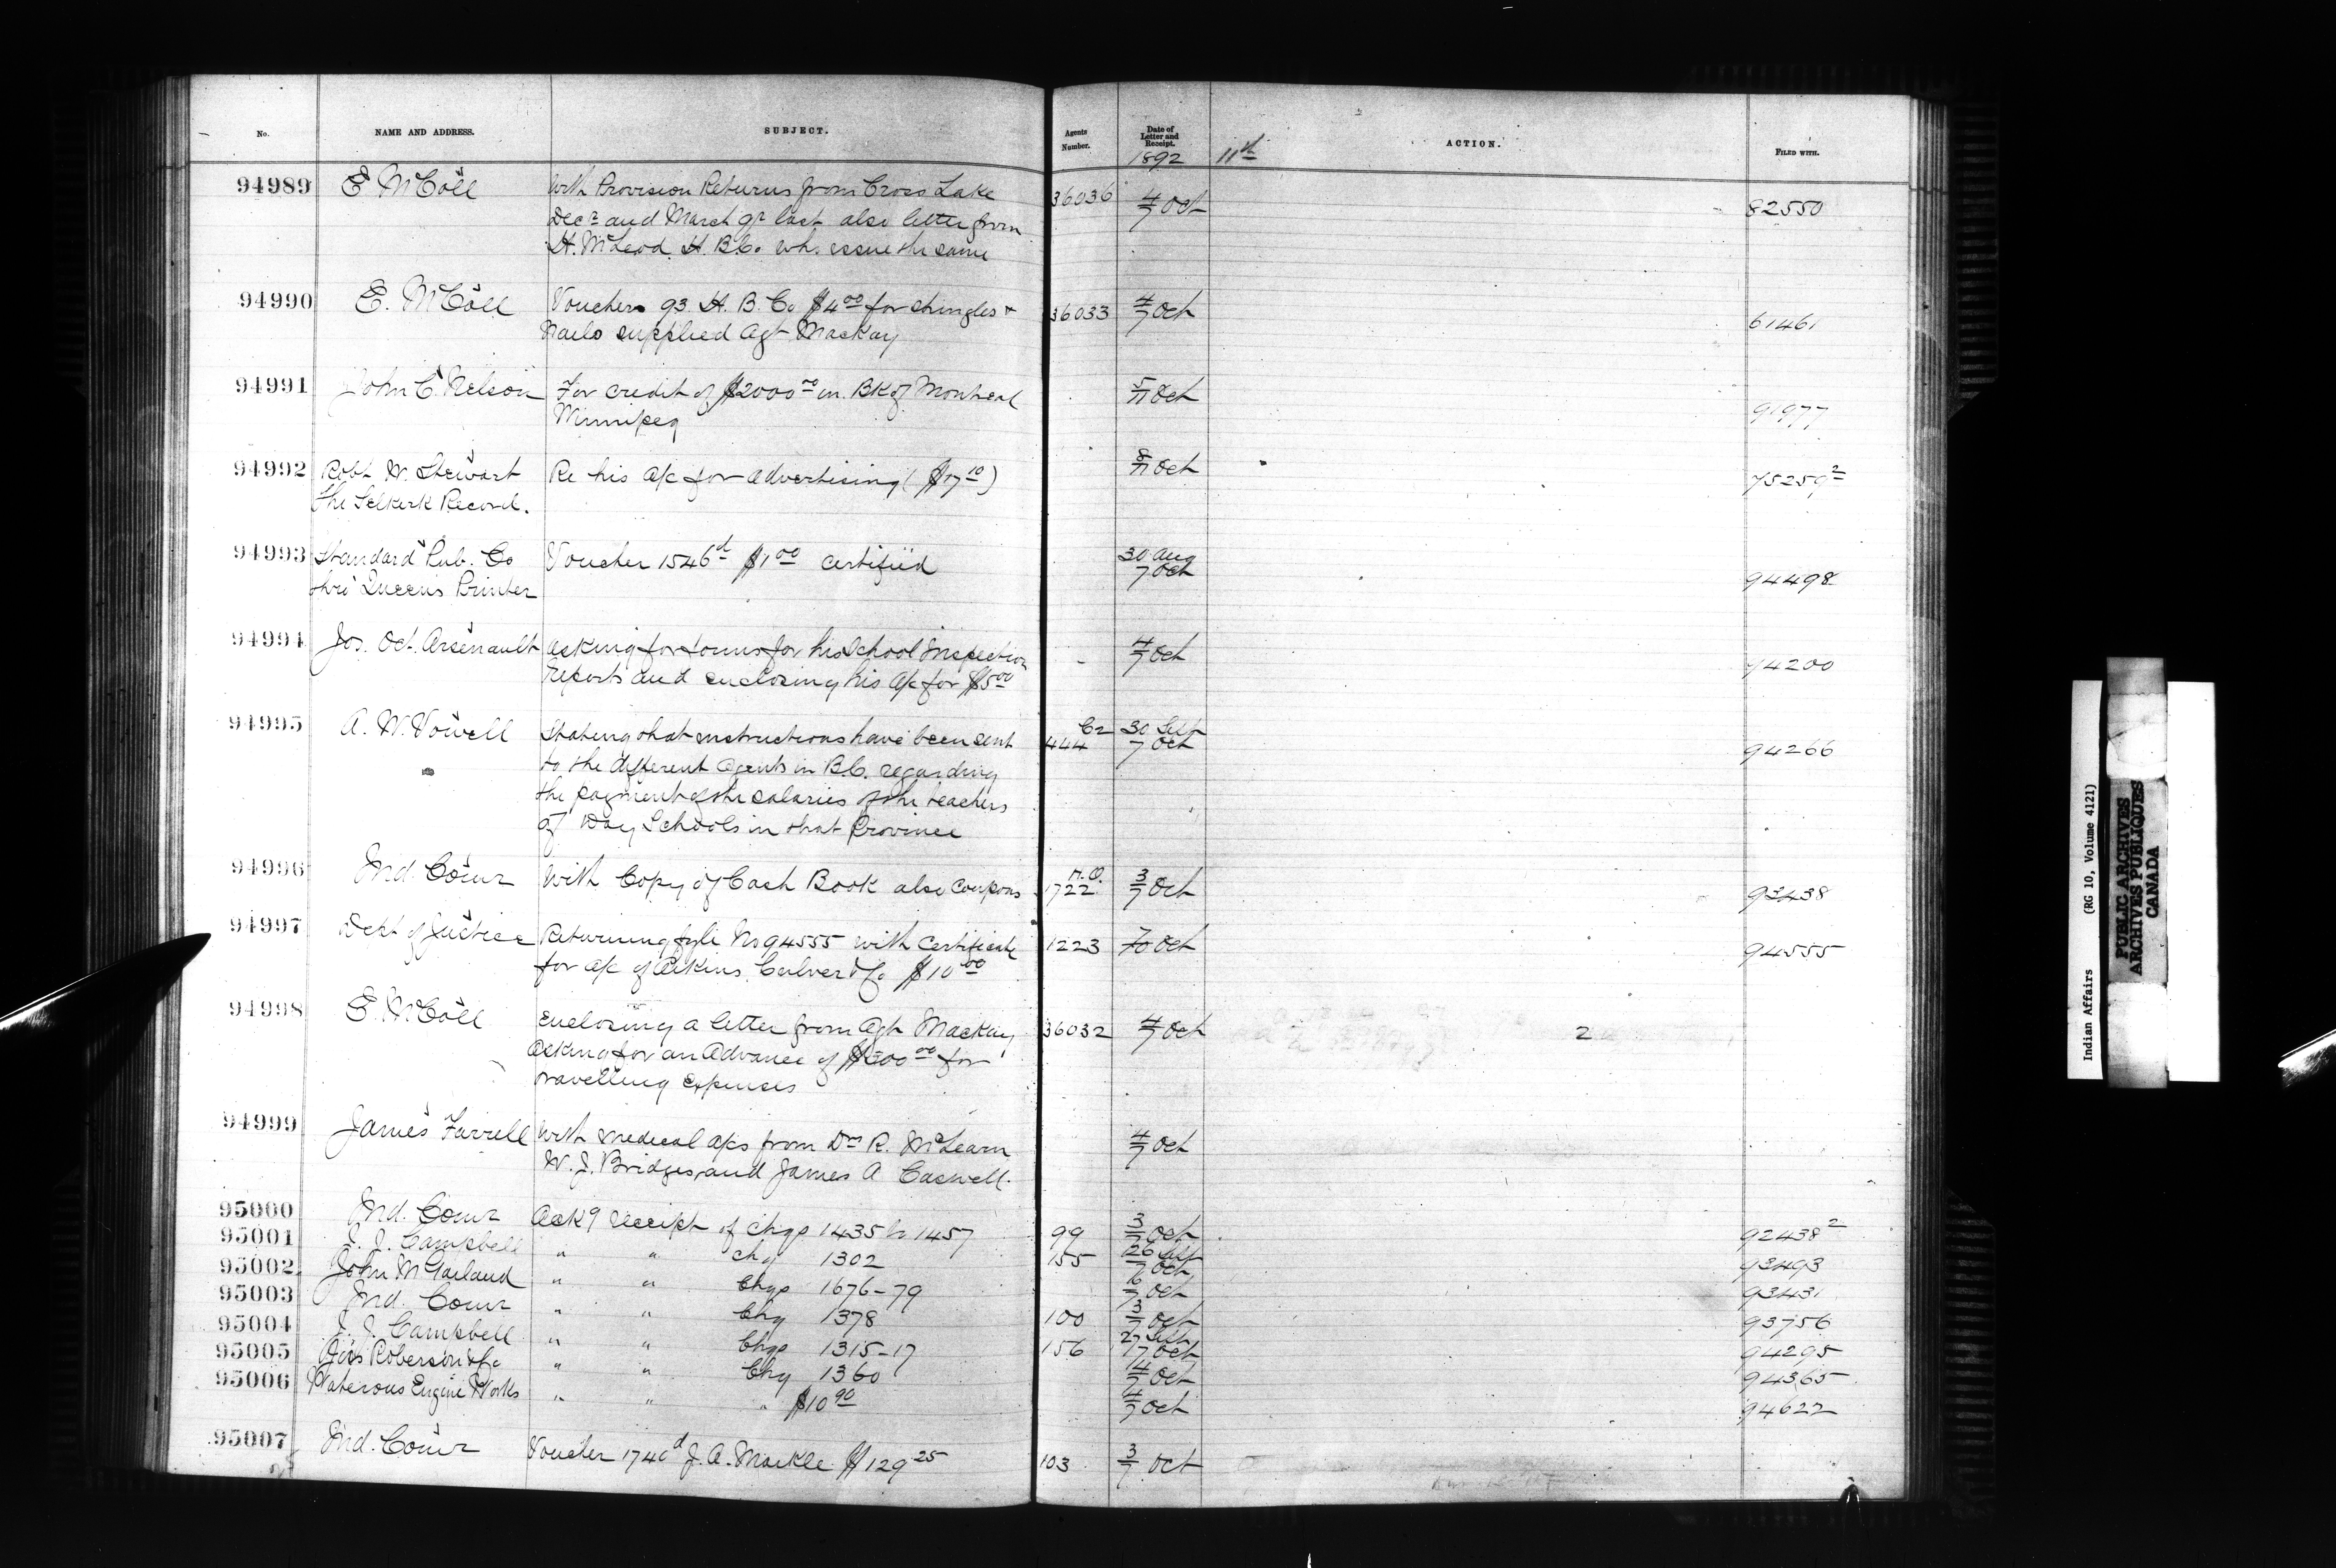 No. NAME AND ADDRESS. SUBJECT. Agents Number. Date of Letter and Receipt. ACTION. FILED WITH.
1892 11th
94989 E McColl With Provision Returns from Cross Lake 36036 4/7 Oct 82550
Decr and March qr last also letter from
H. McLeod H. B. Co. wh. issue the same
94990 E. McColl Vouchers 93 H. B. Co $4 00 for shingles + 36033 4/7 Oct 61461
Nails supplied Agt Mackay
94991 John C. Nelson For credit of $2000 00 in Bk of Montreal 5/7 Oct 91977
Winnipeg
94992 Robt W. Stewart Re his a/c for advertising ($17 10) 8/7 Oct 75259 2
The Selkirk Record.
94993 Standard Pub. Co Voucher 1546 d $1 00 certified 30 Aug 94498
thro' Queen's Printer 7 Oct
94994 Jos. Oct. Arsenault Asking for forms for his School Inspection 4/7 Oct 74200
Reports and enclosing his a/c for $5 00
94995 A. W. Vowell Stating that instructions have been sent 444 30 Sept 94266
to the different Agents in B.C. regarding 7 Oct
the payment of the salaries of the teachers
of Day Schools in that Province
94996 Ind. Comr With Copy of Cash Book also Coupons 1722 3/7 Oct 93438
94997 Dept of Justice Returning file No 94555 with Certificate 1223 Oct 94555
for a/c of Aikins Culver & Co $10 00
94998 E. McColl Enclosing a letter from Agt Mackay 36032 4/7 Oct 2
Asking for an Advance of $500 00 for
travelling expenses
94999 James Farrell With medical a/cs from Drs R. McLearn 4/7 Oct
W. J. Bridges and James A Caswell.
95000 Ind. Comr Ackg receipt of chqs 1435 to 1457 99 3/7 Oct 92438 2
95001 J. J. Campbell " " chq 1302 155 26 Sept 7 Oct 93493
95002 John McTarland " " Chqs 1676-79 6/7 Oct 93431
95003 Ind. Comr " " Chq 1378 100 3/7 Oct 93756
95004 J. J. Campbell " " Chqs 1315-17 156 27 Sept 7 Oct 94295
95005 Roberson & Co " " Chq 1360 4/7 Oct 94365
95006 Waterous Engine Works " " " $10 90 4/7 Oct 94622
95007 Ind. Comr Voucher 1740 d J. A. Markle $129 25 103 3/7 Oct
Indian Affairs (RG 10, Volume 4121)
PUBLIC ARCHIVES
ARCHIVES PUBLIQUES
CANADA